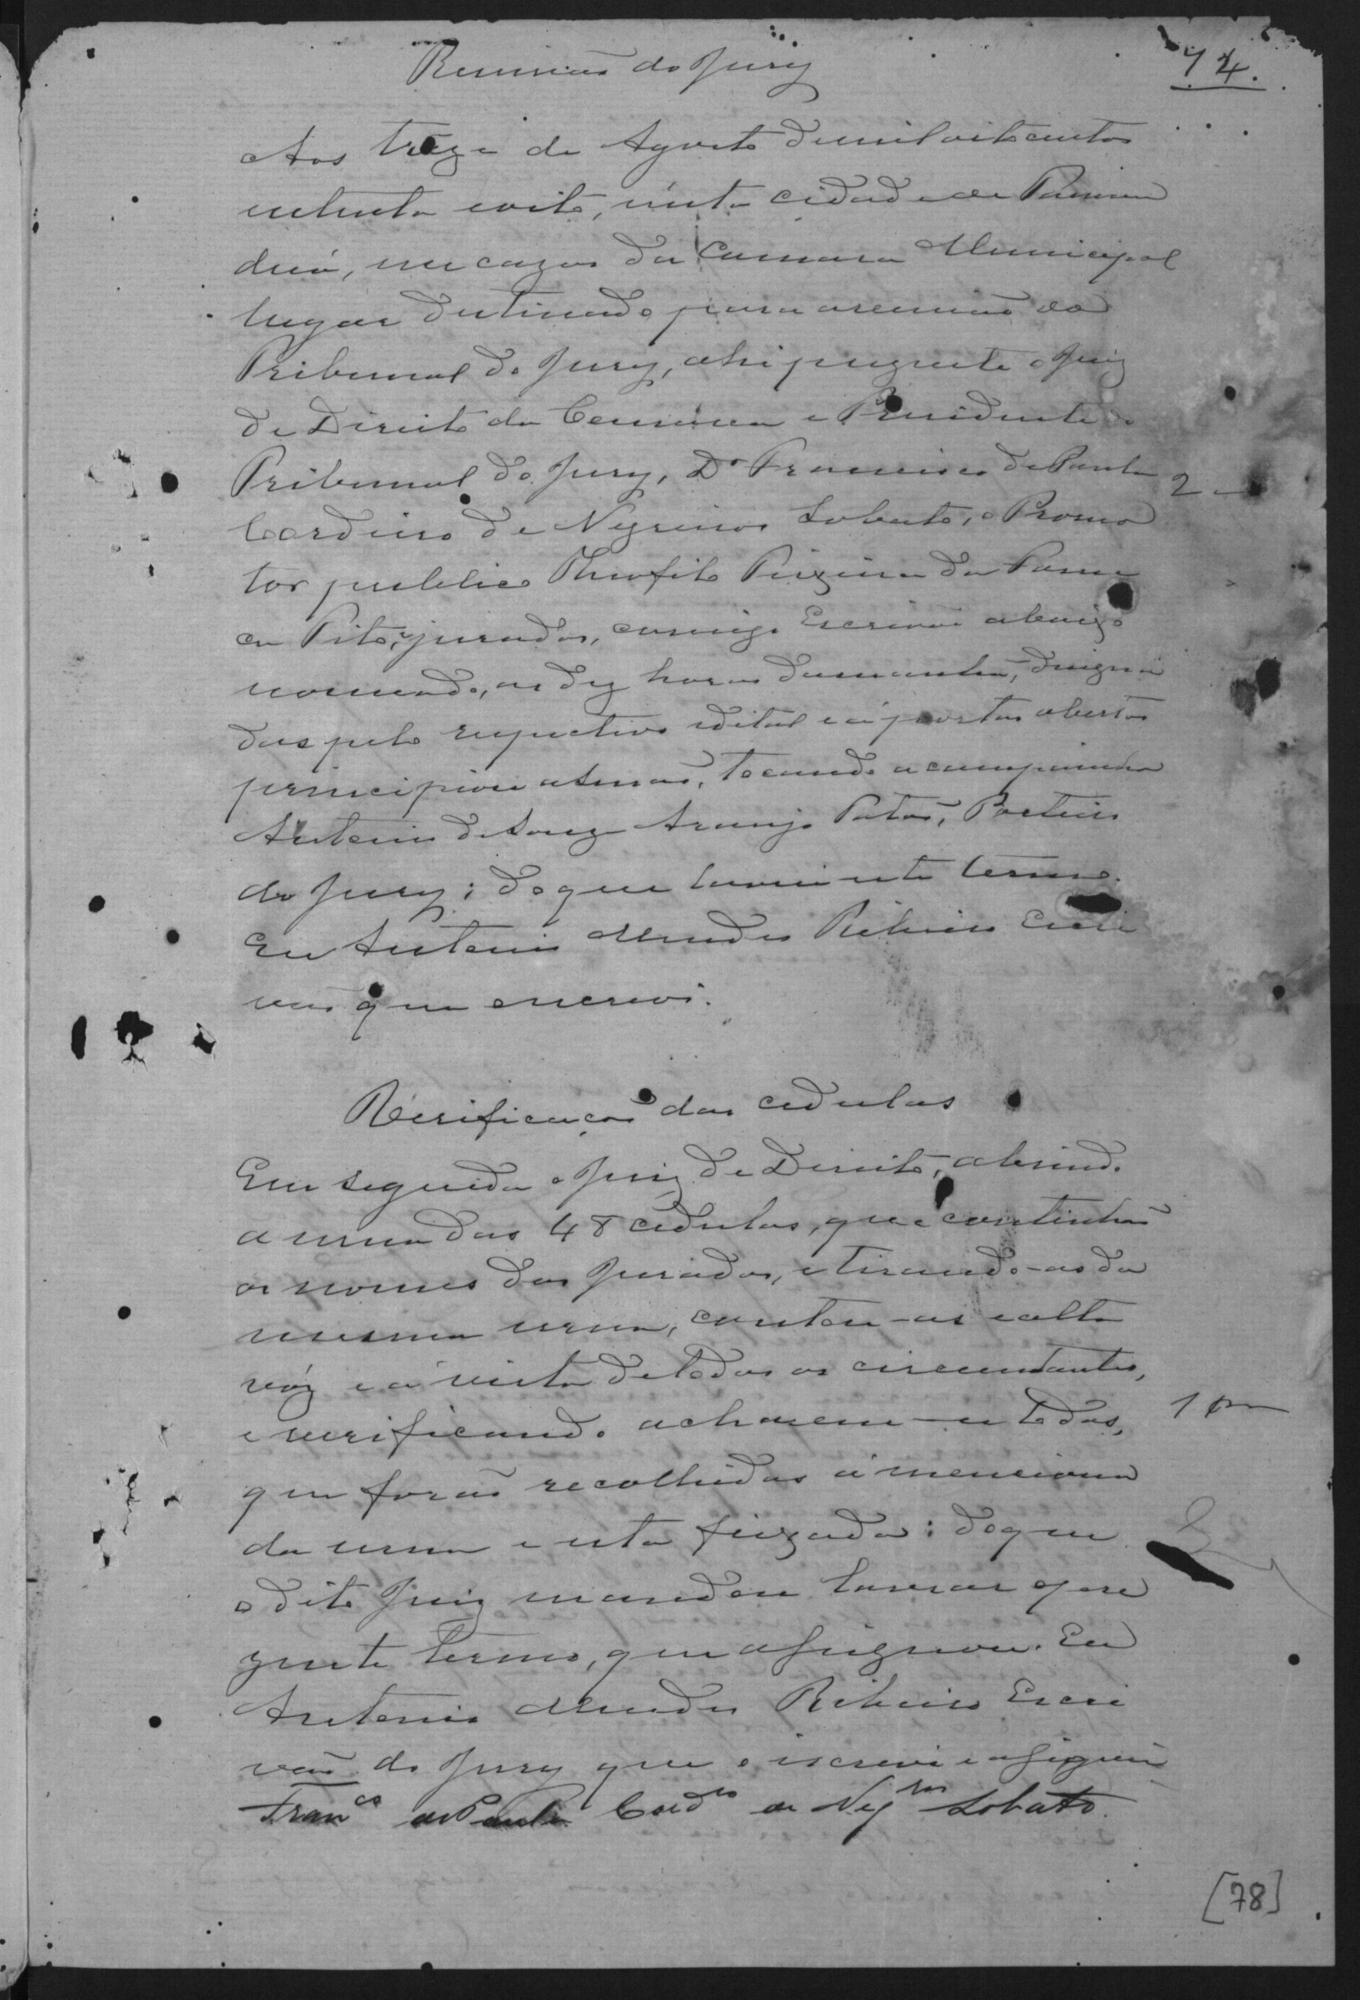 Reunião do Jury
74.
Aos treze de Agosto de mil oitocentos
setenta e oito, nesta cidade de Parana
guá, em cazas da Camara Municipal
lugar destinado para a reunião do
Tribunal do Jury, ahi prezente o Juiz
de Direito da Comarca e Presidente do
Tribunal do Jury, Dr Francisco de Paula
2
Cordeiro de Negreiros Lobato, o Promo
tor publico Theofilo
jurados, comigo Escrivão abaixo
nomeado, as dez horas da manhã, designa
das pelo respectivo edital e á portas abertas
principiou a Sessão, tocando a campainha
Antonio de Souza Araujo Porteiro
do Jury; do que lavrei este termo.
Eu Antonio Mendes Ribeiro Escri
vão que o escrevi.
Verificação das cedulas
Em seguida o Juiz de Direito, abrindo
a urna das 48 cedulas, que continhão
os nomes dos Jurados, e tirando-as da
mesma urna, contou-as em alta
vóz e á vista de todos os circumstantes,
e verificando acharem-se todas,
que forão recolhidas á menciona
da urna e esta feixada: do que
o dito Juiz mandou lavrar o pre
zente termo, que assignou. Eu
Antonio Mendes Ribeiro Escri
vão do Jury que o escrevi e assignei
Franco de Paula Cordro de Negros Lobato.
[78]